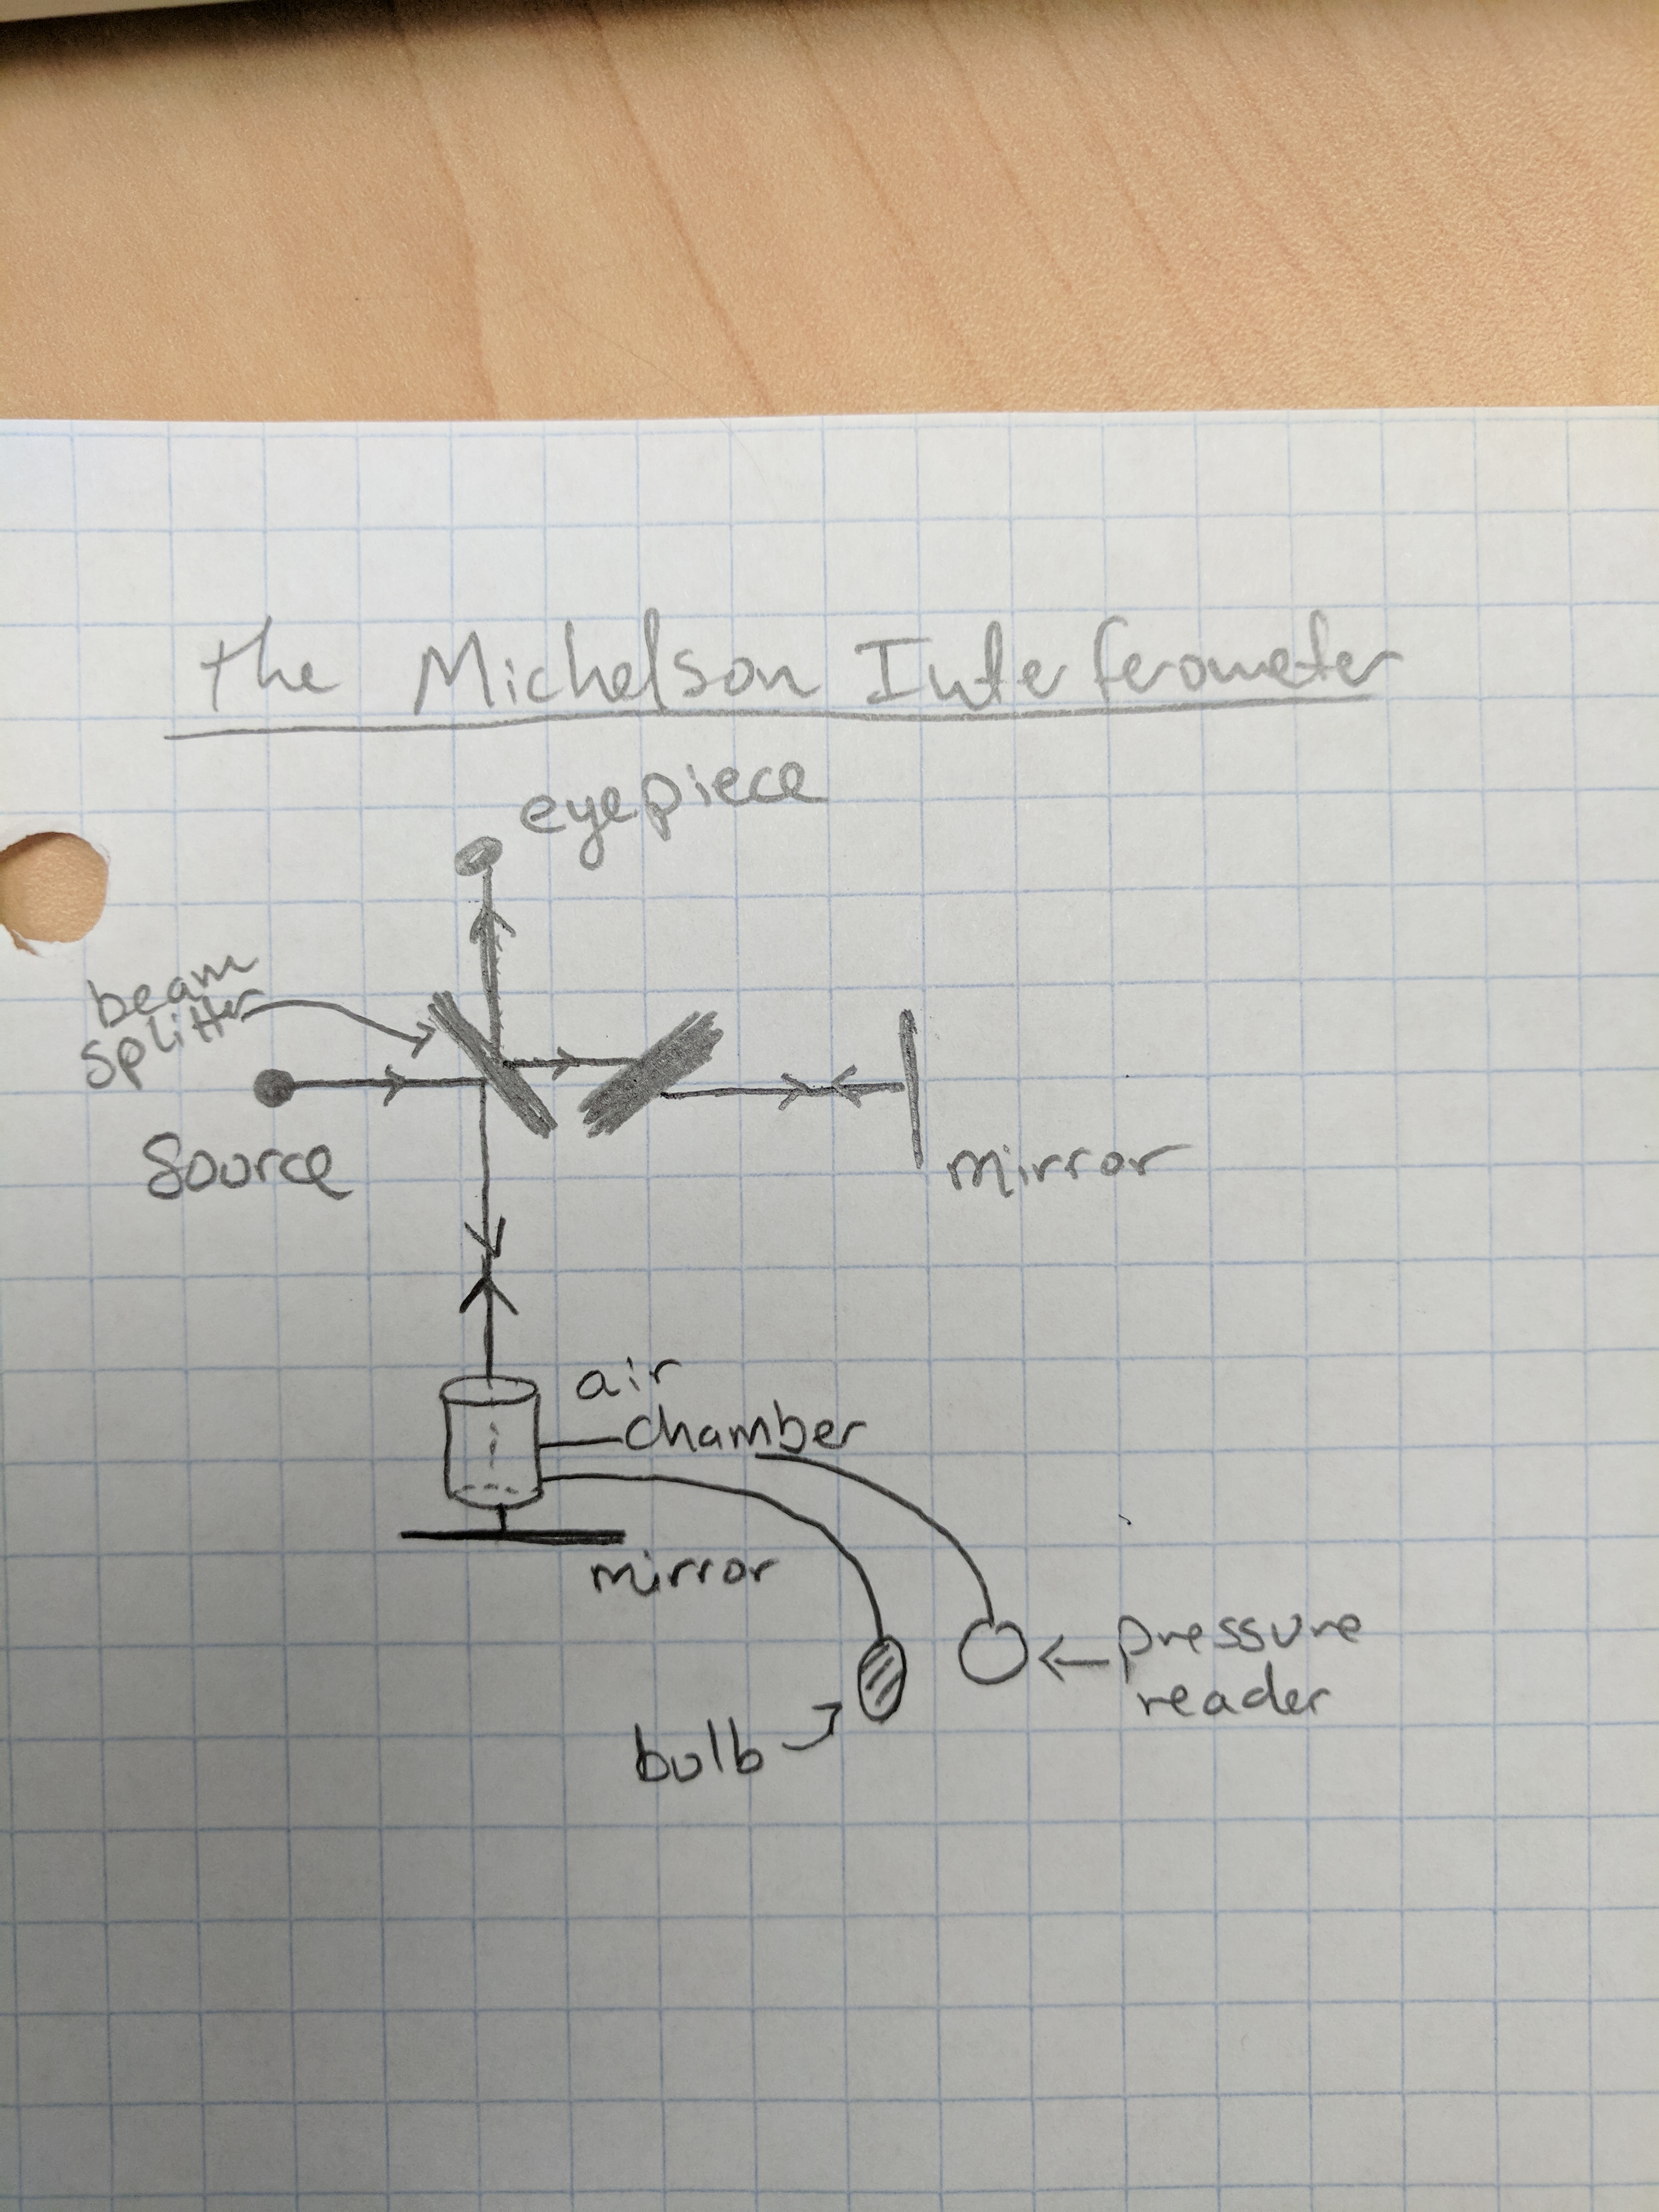 the Michelson Interferometer
eyepiece
beam
splitter
Source
mirror
air
chamber
mirror
pressure
reader
bulb